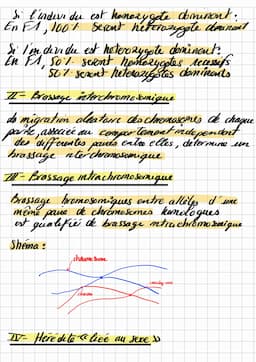 Si l'individu est homozygote dominant :
En F1, 100% seront hétérozygote dominant
Si l'individu est hétérozygote dominant :
En F1, 50% seront homozygotes récessifs
50% seront hétérozygotes dominants
II - Brassage interchromosomique
la migration aléatoire des chromosomes de chaque
paire, associée au comportement indépendant
des différentes paires entre elles, détermine un
brassage interchromosomique
III - Brassage intrachromosomique
Brassage chromosomiques entre allèles d'une
même paire de chromosomes homologues
est qualifié de brassage intrachromosomique
Shéma :
chromosome
IV - Hérédité "liée au sexe"